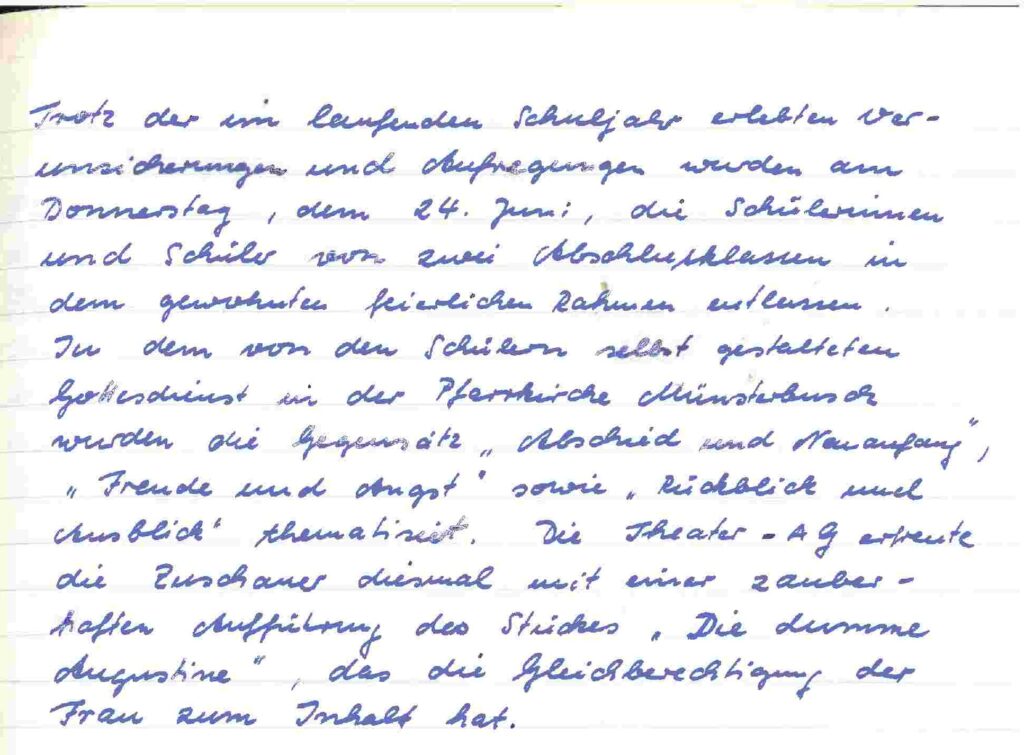 Trotz der im laufenden Schuljahr erlebten Ver-
unsicherungen und Aufregungen wurden am
Donnerstag, dem 24. Juni, die Schülerinnen
und Schüler von zwei Abschlußklassen in
dem gewohnten feierlichen Rahmen entlassen.
In dem von den Schülern selbst gestalteten
Gottesdienst in der Pfarrkirche Münsterbusch
wurden die Gegensätz „Abschied und Neuanfang",
„Freude und Angst" sowie „Rückblick und
Ausblick" thematisiet. Die Theater-AG erfreute
die Zuschauer diesmal mit einer zauber-
haften Aufführung des Stückes „Die dumme
Augustine", das die Gleichberechtigung der
Frau zum Inhalt hat.